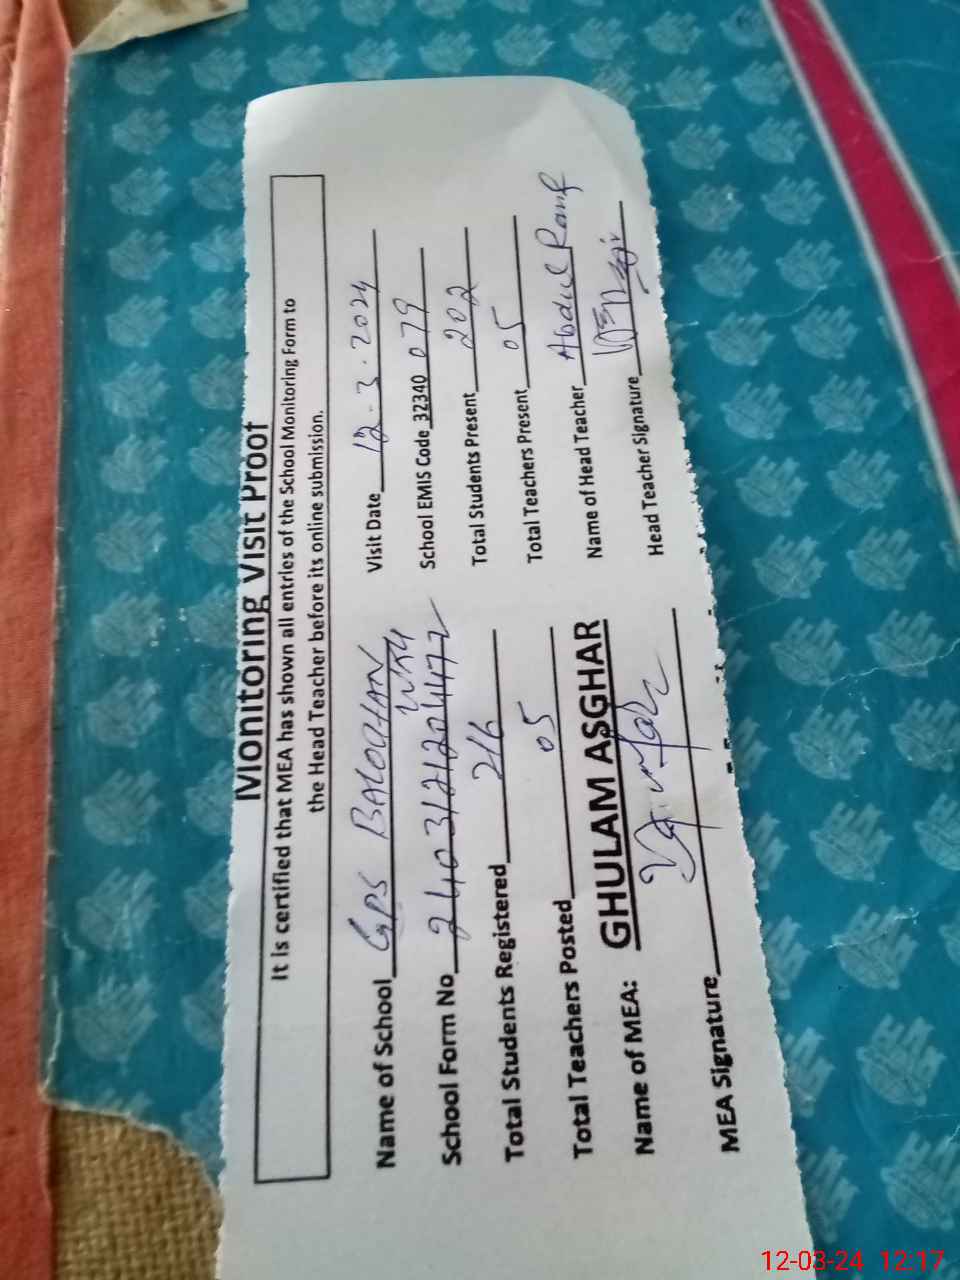 Monitoring Visit Proof
It is certified that MEA has shown all entries of the School Monitoring Form to
the Head Teacher before its online submission.
Name of School GPS BALOCHAN
WRU
Visit Date 12.3.2024
School Form No 2403121204477
School EMIS Code 32340 079
Total Students Registered 216
Total Students Present 202
Total Teachers Posted 05
Total Teachers Present 05
Name of MEA: GHULAM ASGHAR
Name of Head Teacher Abdul Rauf
MEA Signature
Head Teacher Signature
12-03-24 12:17